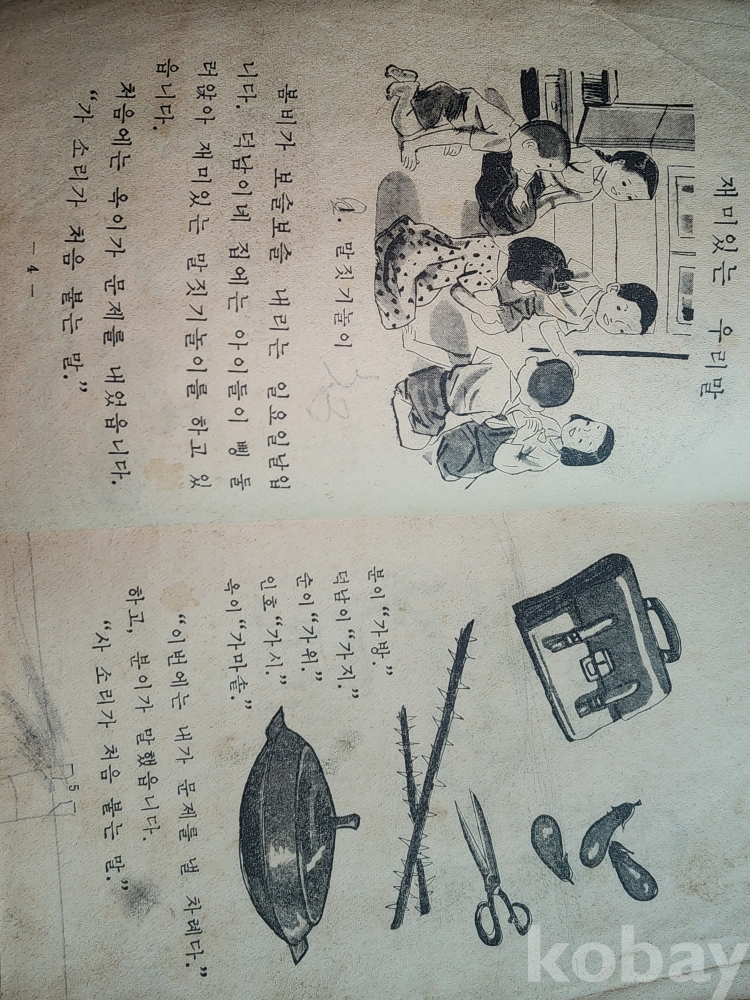 재미있는 우리말
말짓기놀이
봄비가 보슬보슬 내리는 일요일날입
니다. 덕남이네 집에는 아이들이 삥 둘
러앉아 재미있는 말짓기놀이를 하고 있
읍니다.
처음에는 옥이가 문제를 내었읍니다.
“가 소리가 처음 붙는 말.”
– 4 –
분이 “가방.”
덕남이 “가지.”
순이 “가위.”
인호 “가시.”
옥이 “가마솥.”
“이번에는 내가 문제를 낼 차례다.”
하고, 분이가 말했읍니다.
“사 소리가 처음 붙는 말.”
5
kobay